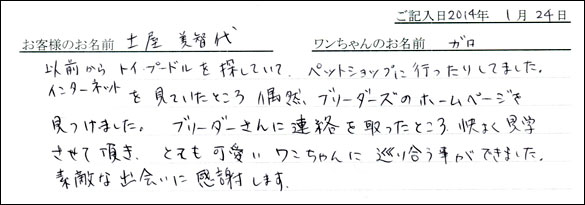 ご記入日2014年 1月24日
お客様のお名前 土屋 美智代 ワンちゃんのお名前 ガロ
以前からトイ・プードルを探していて、ペットショップに行ったりしてました。
インターネットを見ていたところ偶然、ブリーダーズのホームページを
見つけました。ブリーダーさんに連絡を取ったところ、快よく見学
させて頂き、とても可愛いワンちゃんに巡り合う事ができました。
素敵な出会いに感謝します。